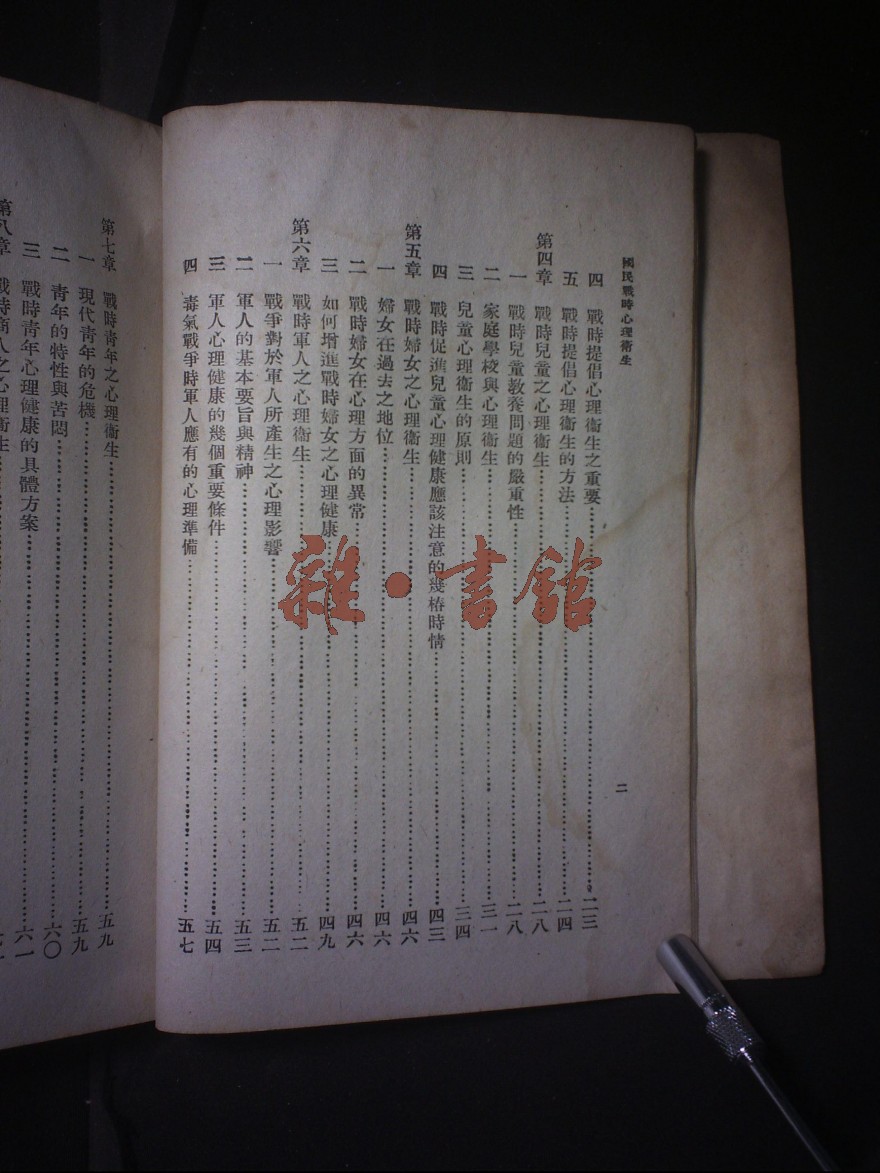 國民戰時心理衞生
二
四 戰時提倡心理衞生之重要 二三
五 戰時提倡心理衞生的方法 二四
第四章 戰時兒童之心理衞生 二八
一 戰時兒童教養問題的嚴重性 二八
二 家庭學校與心理衞生 三一
三 兒童心理衞生的原則 三四
四 戰時促進兒童心理健康應該注意的幾樁時情 四三
第五章 戰時婦女之心理衞生 四六
一 婦女在過去之地位 四六
二 戰時婦女在心理方面的異常 四六
三 如何增進戰時婦女之心理健康 四九
第六章 戰時軍人之心理衞生 五二
一 戰爭對於軍人所產生之心理影響 五二
二 軍人的基本要旨與精神 五三
三 軍人心理健康的幾個重要條件 五四
四 毒氣戰爭時軍人應有的心理準備 五七
第七章 戰時青年之心理衞生 五九
一 現代青年的危機 五九
二 青年的特性與苦悶 六〇
三 戰時青年心理健康的具體方案 六一
第八章 戰時商人之心理衞生
雜·書館